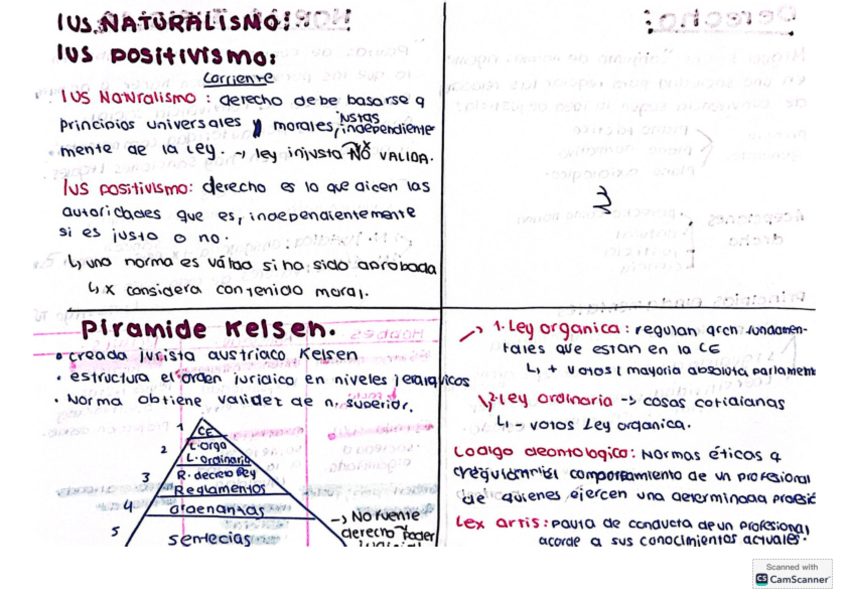 IUS NATURALISMO:
IUS POSITIVISMO:
Corriente
IUS Naturalismo : derecho debe basarse q
principios universales y morales, justas independiente
mente de la ley. → ley injusta NO VALIDA.
IUS POSITIVISMO: derecho es lo que dicen las
autoridades que es, independientemente
si es justo o no.
↳ una norma es válida si ha sido aprobada
↳ x considera contenido moral.
Piramide Kelsen.
• creada jurista austriaco Kelsen
• estructura el orden juridico en niveles jerarquicos
• Norma obtiene validez de n. superior.
1 CE
2 L. orga
L. Ordinaria
3 R. decreto ley
Reglamentos
4 ordenanzas
5 sentecias
→ No fuente
derecho poder
judicial
→ 1. Ley organica : regulan drch fundamen-
tales que estan en la CE
↳ + votos ( mayoria absoluta parlament
2. Ley ordinaria → cosas cotidianas
↳ - votos Ley organica.
Codigo deontologico: Normas éticas q
regulan el comportamiento de un profesional
de quienes ejercen una determinada profesió
Lex artis: pauta de conducta de un profesional
acorde a sus conocimientos actuales.
Scanned with
CS CamScanner